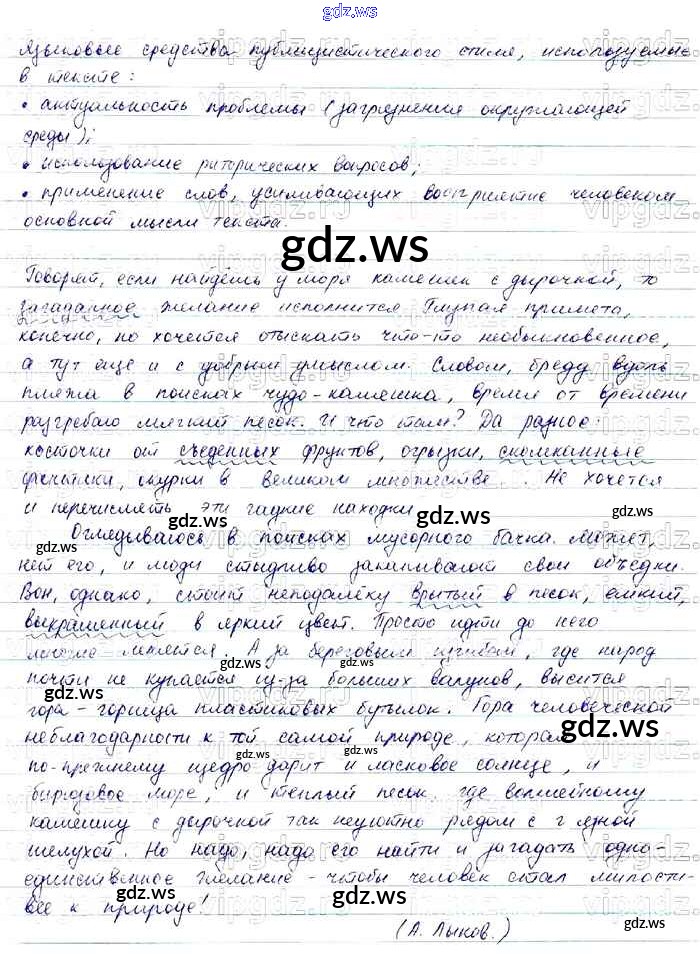 gdz.ws
Языковые средства публицистического стиля, используемые
в тексте:
• актуальность проблемы (загрязнения окружающей
среды);
• использование риторических вопросов;
• применение слов, усиливающих восприятие человеком
основной мысли текста.
gdz.ws
Говорят, если найдёшь у моря камешек с дырочкой, то
загаданное желание исполнится. Глупая примета,
конечно, но хочется отыскать что-то необыкновенное,
а тут еще и с добрым умыслом. Словом, бреду вдоль
пляжа в поисках чудо-камешка, время от времени
разгребаю мягкий песок. И что там? Да разное:
косточки от съеденных фруктов, огрызки, скомканные
фантики, окурки в великом множестве... Не хочется
и перечислять эти гадкие находки.
gdz.ws gdz.ws
Оглядываюсь в поисках мусорного бачка. Может,
gdz.ws gdz.ws
нет его, и люди стыдливо закапывают свои объедки.
Вон, однако, стоит неподалёку врытый в песок, ёмкий,
выкрашенный в яркий цвет. Просто идти до него
лично лень. А за береговым изгибом, где народ
gdz.ws gdz.ws
почти не купается из-за больших валунов, высится
gdz.ws
гора-горища пластиковых бутылок. Гора человеческой
gdz.ws
неблагодарности к той самой природе, которая
gdz.ws gdz.ws
по-прежнему щедро дарит и ласковое солнце, и
бирюзовое море, и тёплый песок, где волшебному
камешку с дырочкой так неуютно рядом с
шелухой. Но надо, надо его найти и загадать одно-
единственное желание - чтобы человек стал милости-
вее к природе!
gdz.ws gdz.ws
(А. Лыков.)
gdz.ws